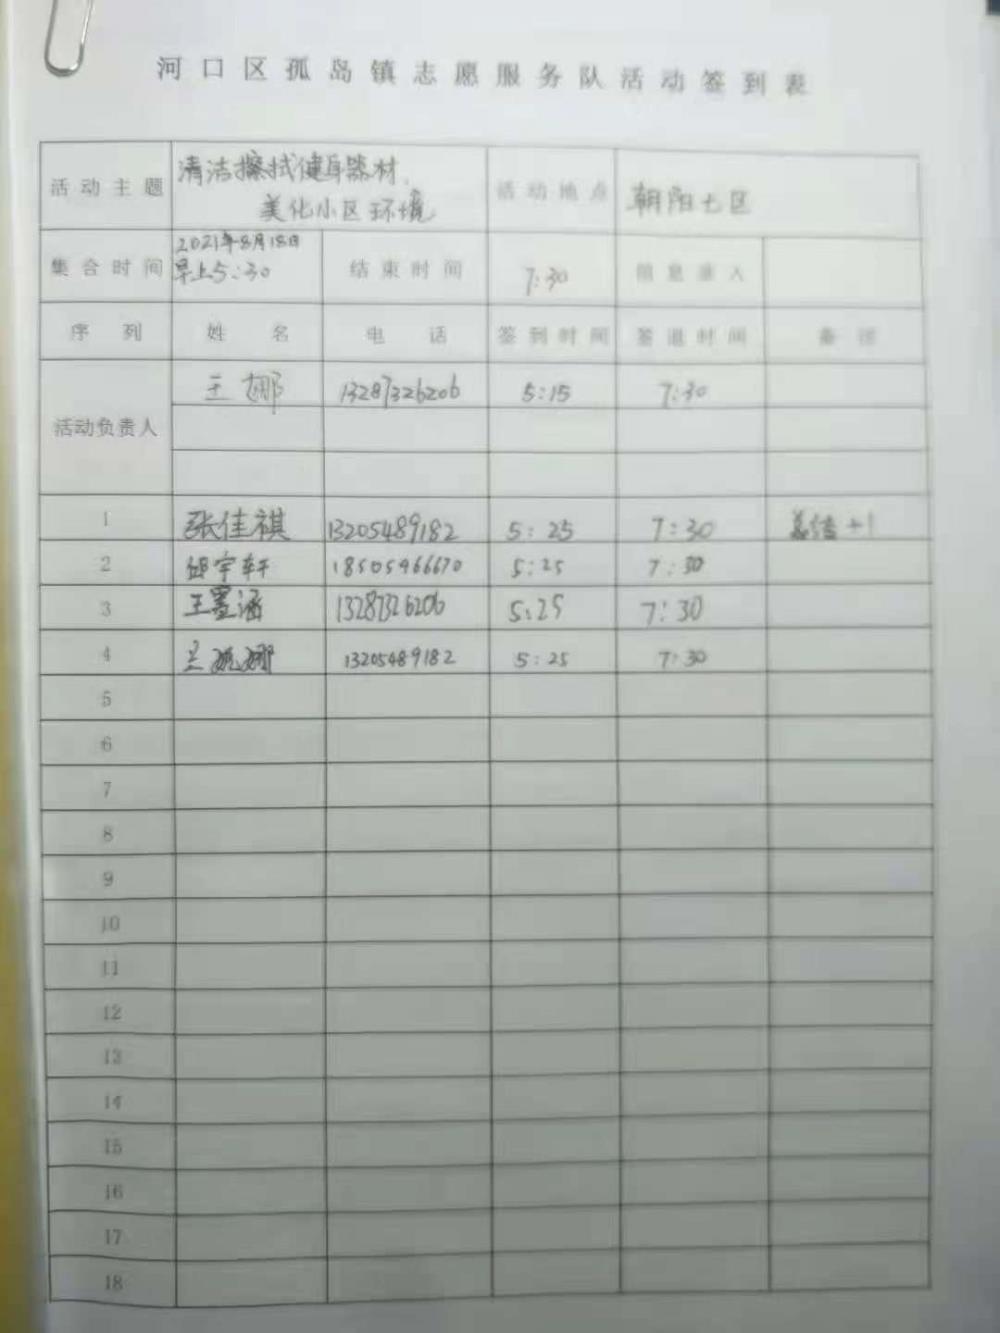 河口区孤岛镇志愿服务队活动签到表
活动主题 清洁擦拭健身器材、 活动地点 朝阳七区
美化小区环境
集合时间 2021年8月18日 结束时间 7:30 信息录入
早上5:30
序列 姓名 电话 签到时间 签退时间 备注
活动负责人 王娜 13287326206 5:15 7:30
1 张佳祺 13205489182 5:25 7:30 +1
2 宇轩 18505466670 5:25 7:30
3 王墨涵 13287326206 5:25 7:30
4 兰娜 13205489182 5:25 7:30
5
6
7
8
9
10
11
12
13
14
15
16
17
18